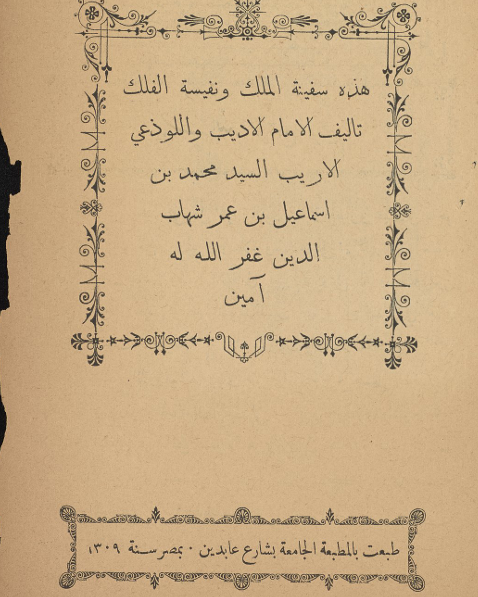 هذه سفينة الملك ونفيسة الفلك
تاليف الامام الاديب واللوذعي
الاريب السيد محمد بن
اسماعيل بن عمر شهاب
الدين غفر الله له
آمين
طبعت بالمطبعة الجامعة بشارع عابدين ٠ بمصر سنة ١٣٠٩